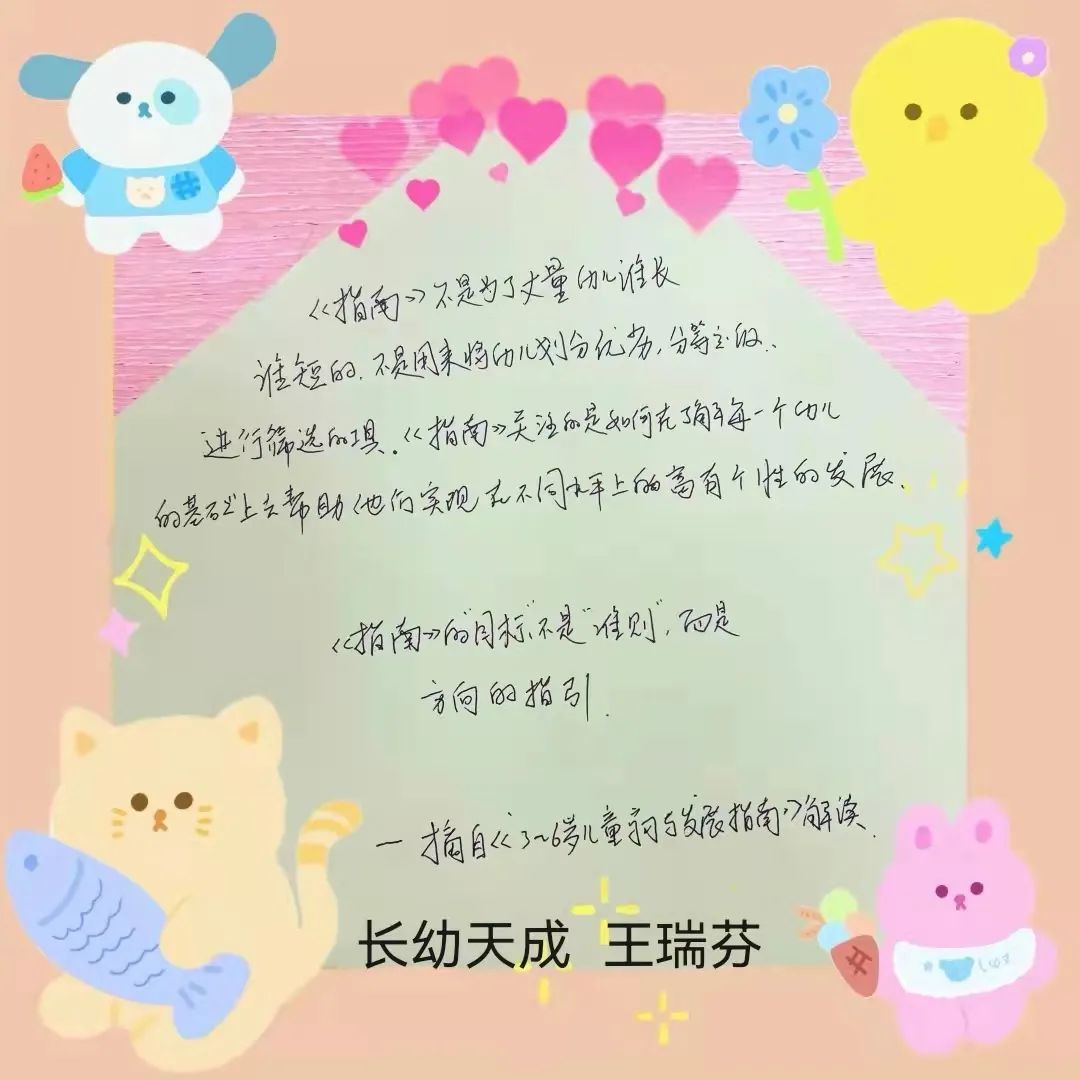 《指南》不是为了丈量幼儿谁长
谁短的，不是用来将幼儿划分优劣，分等立级、
进行筛选的工具。《指南》关注的是如何在了解每一个幼儿
的基础上去帮助他们实现在不同水平上的富有个性的发展。
《指南》的"目标"不是"准则"，而是
方向的指引。
— 摘自《3~6岁儿童学习与发展指南》解读。
长幼天成 王瑞芬